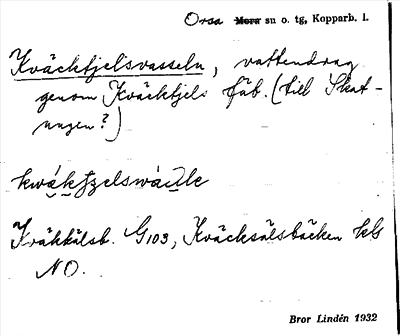 Orsa Mora su o. tg, Kopparb. l.
Kväcktjelsvasseln, vattendrag
genom Kväcktjels fäb. (till Skat-
ungen?)
Kväkkälsb. G103, Kväcksälsbäcken kls
NO.
Bror Lindén 1932